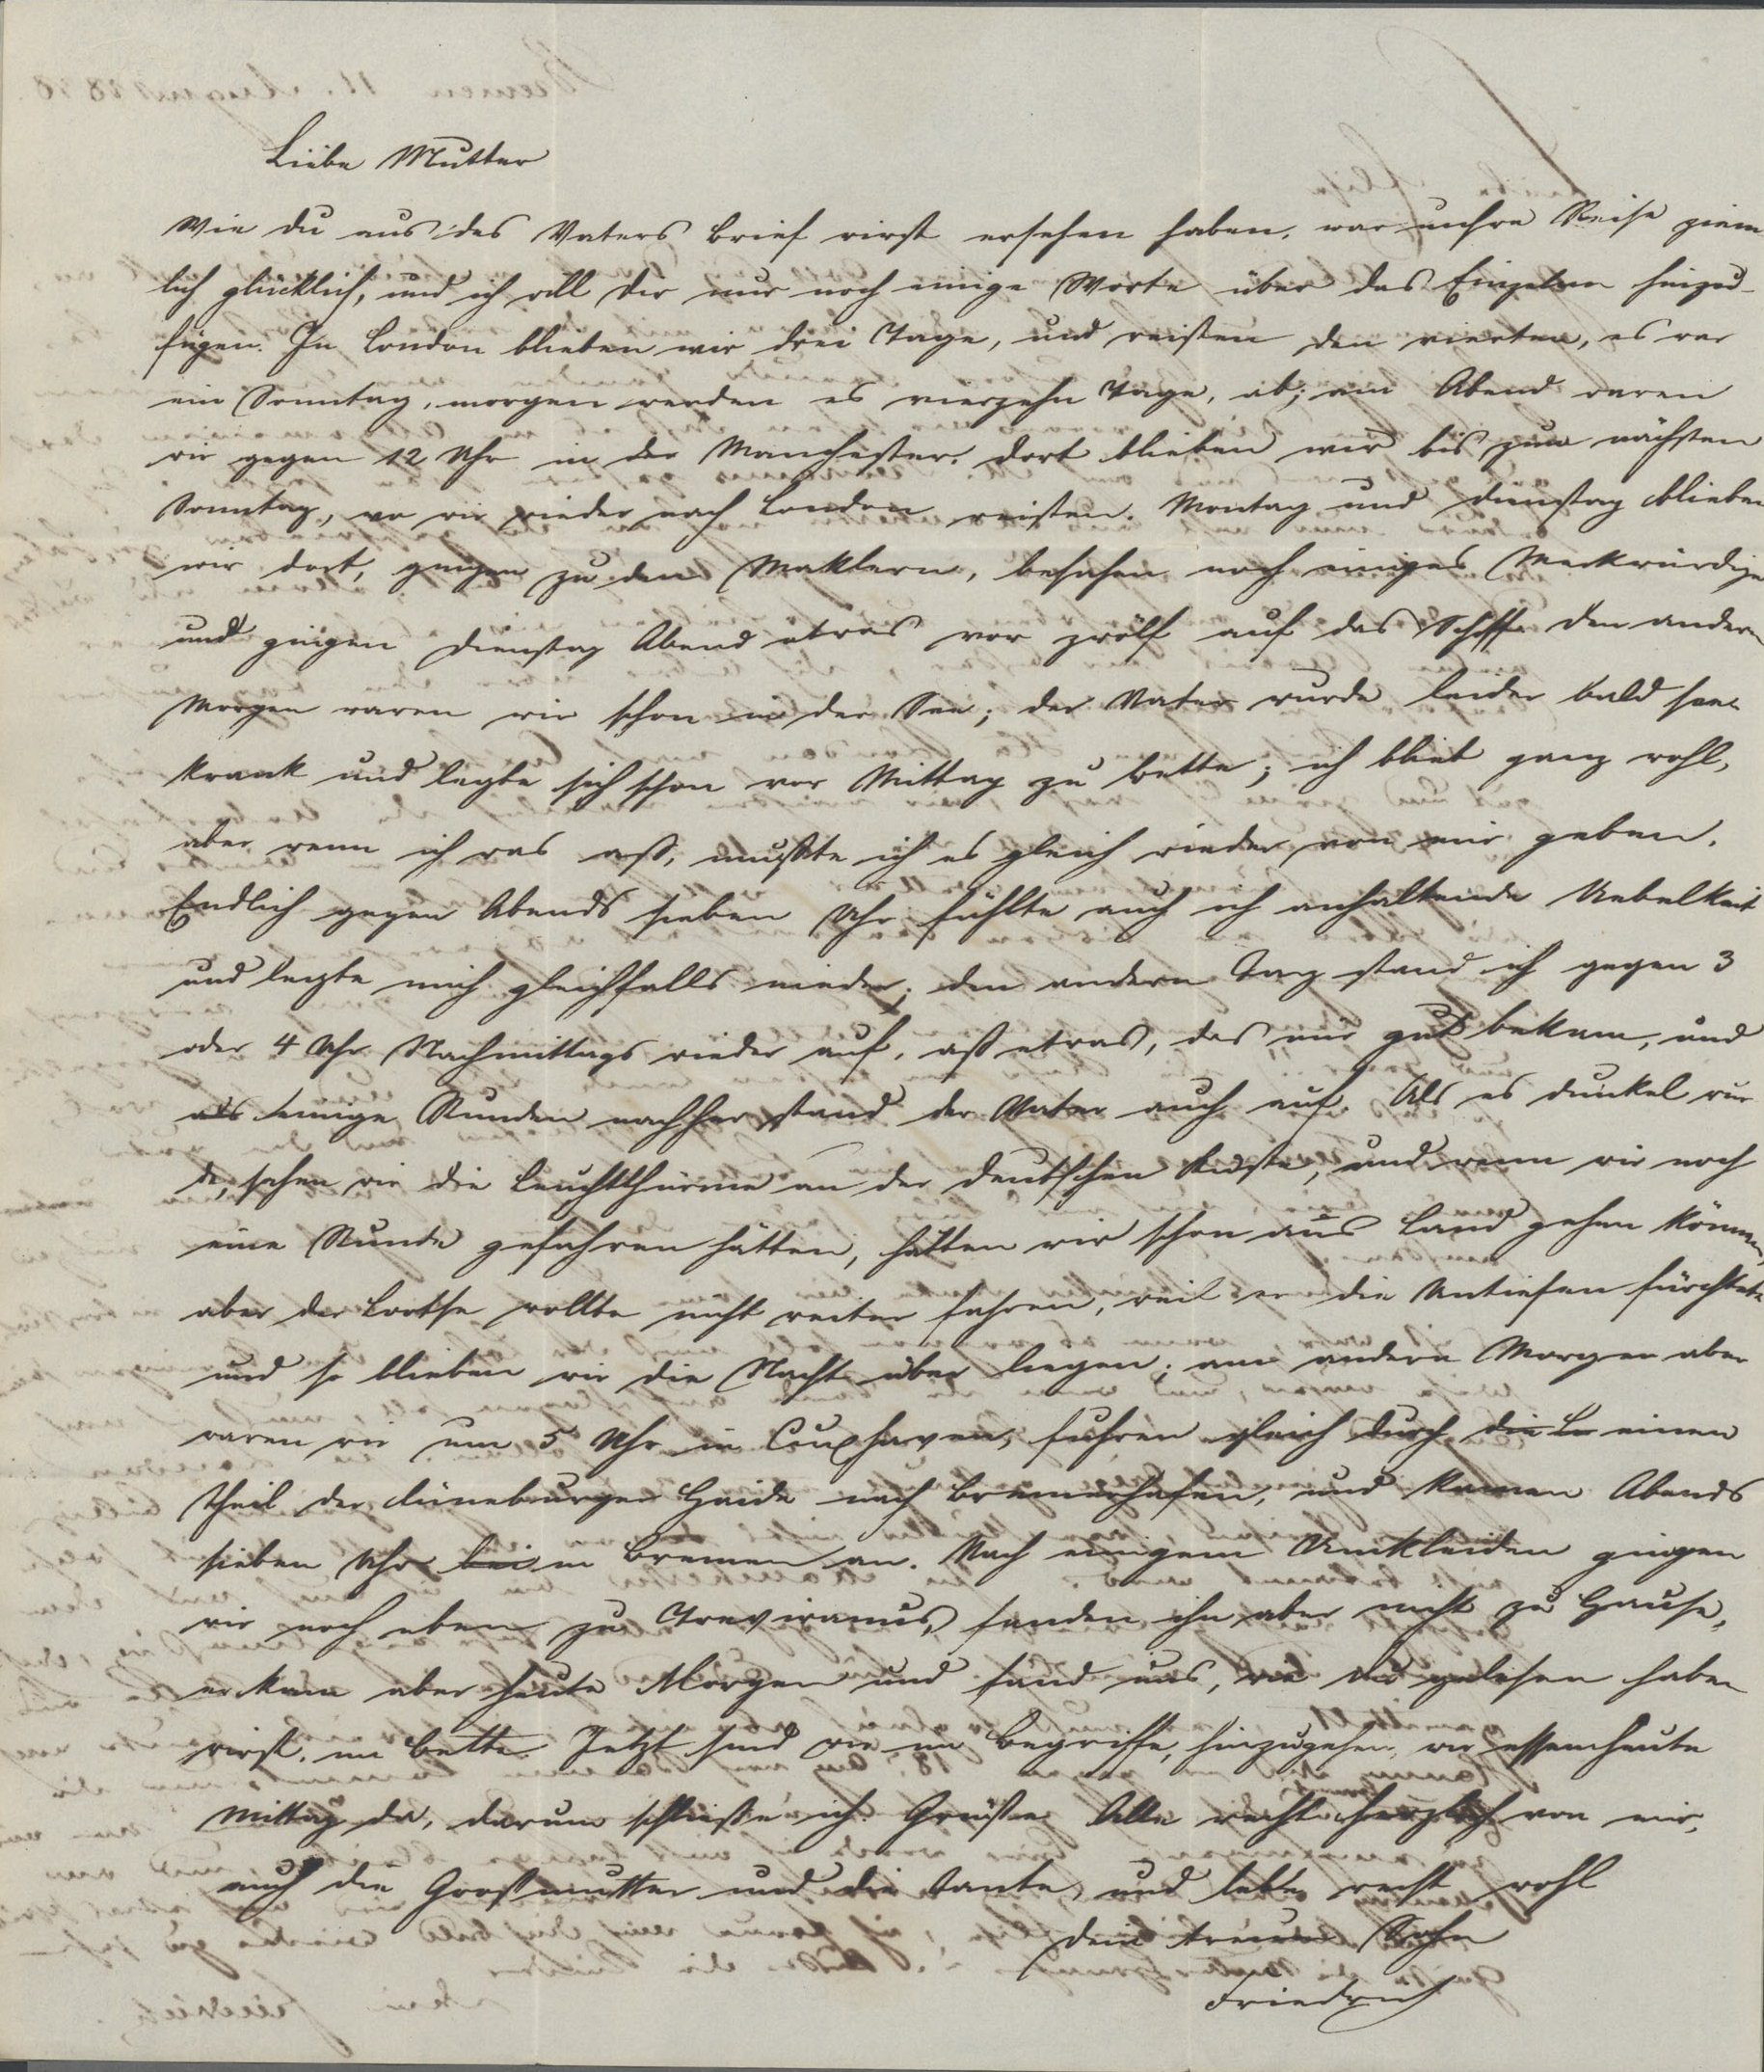 Liebe Mutter
Wie du aus des Vaters Brief wirst ersehen haben, war unsre Reise ziem
lich glücklich, und ich will Dir nur noch einige Worte über das Einzelne hinzu-
fügen. In London blieben wir drei Tage, und reisten den vierten, es war
ein Sonntag, morgen werden es vierzehn Tage, ab; am Abend waren
wir gegen 12 Uhr in der Manchester. Dort blieben wir bis zum nächsten
Sonntag, wo wir wieder nach London reisten. Montag und Dienstag blieben
wir dort, gingen zu den Maklern, besahen noch einiges Merkwürdige
und gingen Dienstag Abend etwas vor zwölf auf das Schiff. Den andern
Morgen waren wir schon in der See; der Vater wurde leider bald see
krank und legte sich schon vor Mittag zu Bette; ich blieb ganz wohl,
aber wenn ich was aß, mußte ich es gleich wieder von mir geben.
Endlich gegen Abends sieben Uhr fühlte auch ich anhaltende Uebelkeit
und legte mich gleichfalls nieder; den andern Tag stand ich gegen 3
oder 4 Uhr Nachmittags wieder auf, aß etwas, das mir gut bekam, und
als einige Stunden nachher stand der Vater auch auf. Als es dunkel wur
de, sahen wir die Leuchtthürme an der deutschen Küste, und wenn wir noch
eine Stunde gefahren hätten, hätten wir schon ans Land gehen können,
aber der Lootse wollte nicht weiter fahren, weil er die Untiefen fürchtete
und so blieben wir die Nacht über liegen; am andern Morgen aber
waren wir um 5 Uhr in Couxhaven, fuhren gleich durch die Lü einen
Theil der Lüneburger Haide nach Bremerhafen, und kamen Abends
sieben Uhr bei in Bremen an. Nach einigem Umkleiden gingen
wir noch eben zu Treviranus, fanden ihn aber nicht zu Hause,
er kam aber heute Morgen und fand uns, wie du gelesen haben
wirst, im Bette. Jetzt sind wir im Begriffe, hinzugehen, wir essen heute
Mittag da, darum schließe ich. Grüße Alle recht herzlich von mir,
auch die Großmutter und die Tante, und lebe recht wohl
Dein treuer Sohn
Friedrich